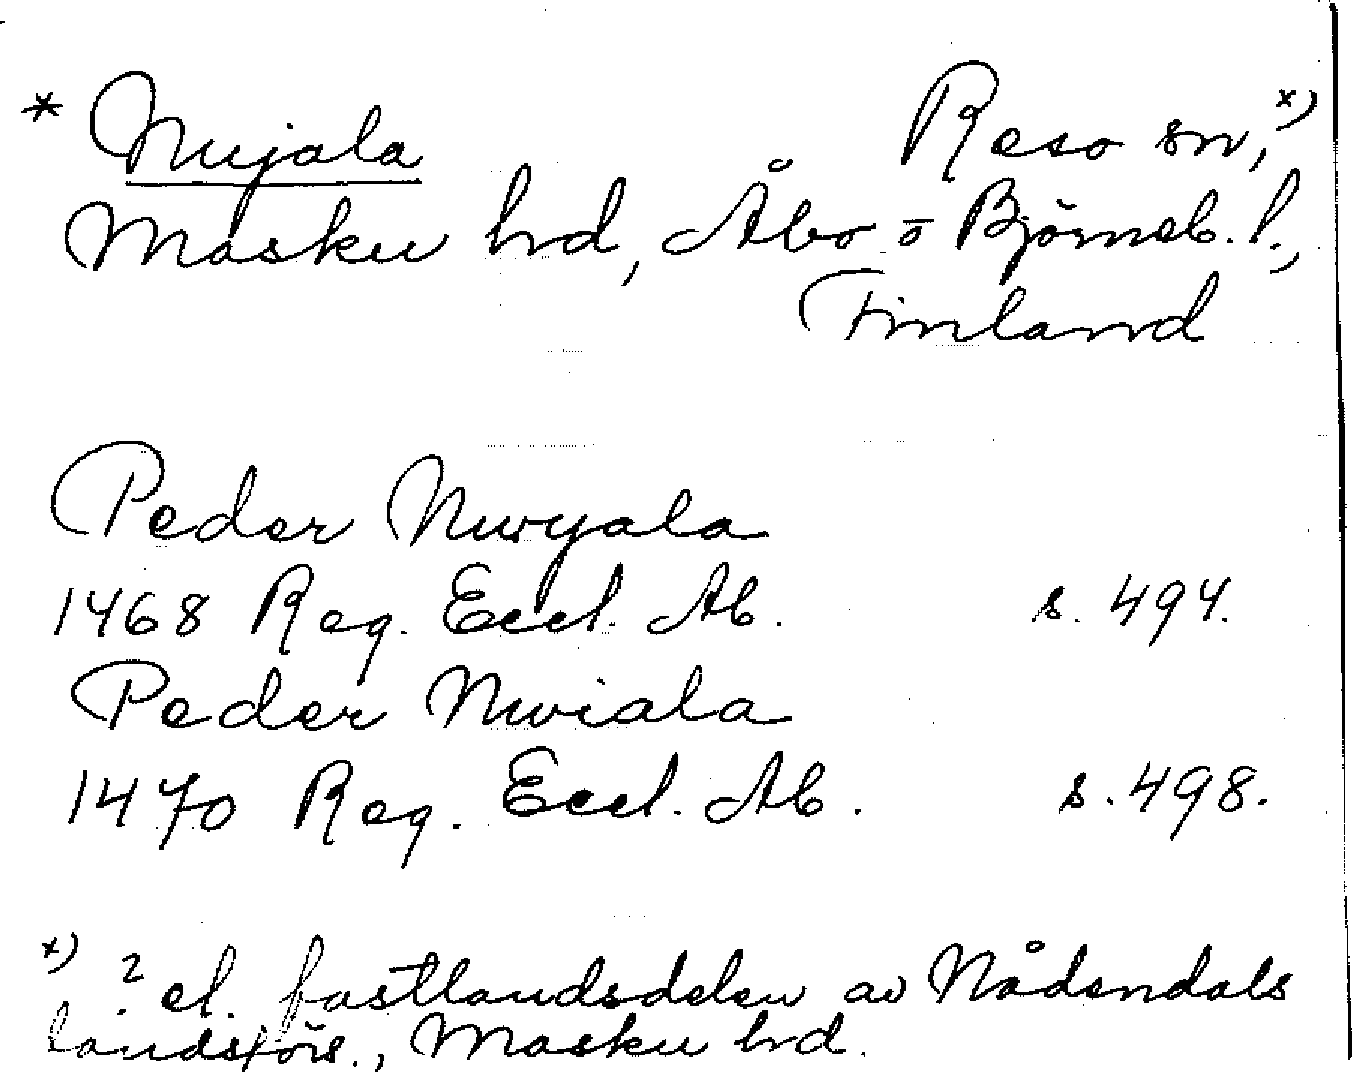 * Nujala Reso sn, x)
Masku hrd, Åbo o Björneb. l.,
Finland
Peder Nwyala
1468 Reg. Eccl. Ab. s. 494.
Peder Nwiala
1470 Reg. Eccl. Ab. s. 498.
x) ? el. fastlandsdelen av Nådendals
landsförs., Masku hrd.